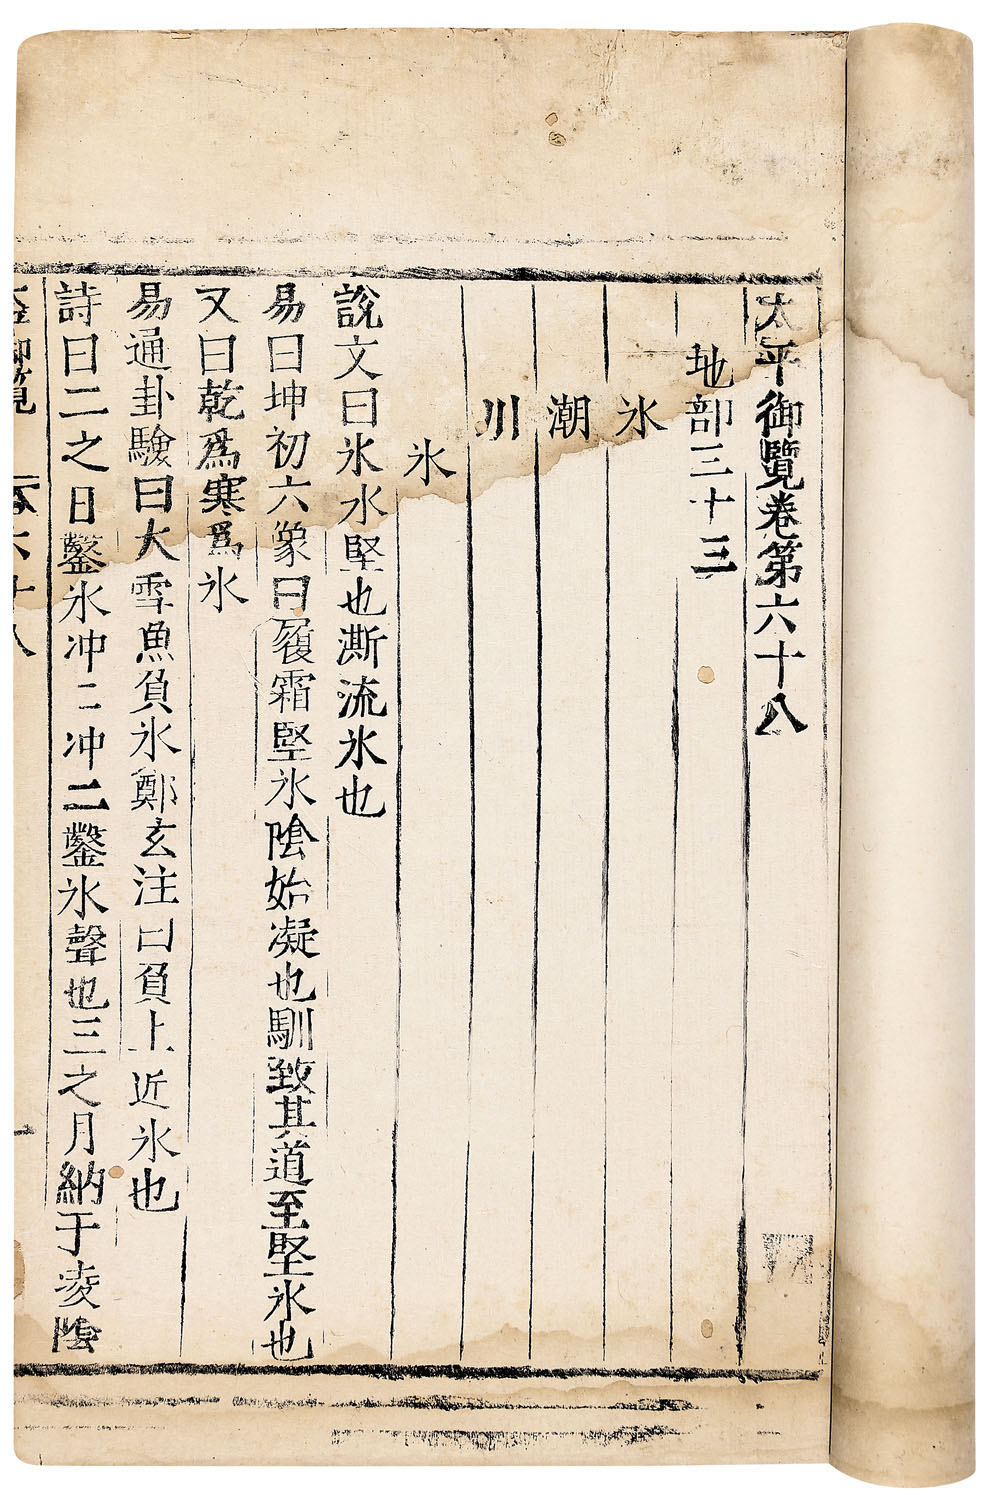 太平御覽卷第六十八
地部三十三
氷
潮
川
氷
說文曰氷水堅也澌流氷也
易曰坤初六象曰履霜堅氷陰始凝也馴致其道至堅氷也
又曰乾爲寒爲氷
易通卦驗曰大雪魚負氷鄭玄注曰負上近氷也
詩曰二之日鑿氷冲二冲二鑿氷聲也三之月納于凌陰
御覽 六十八